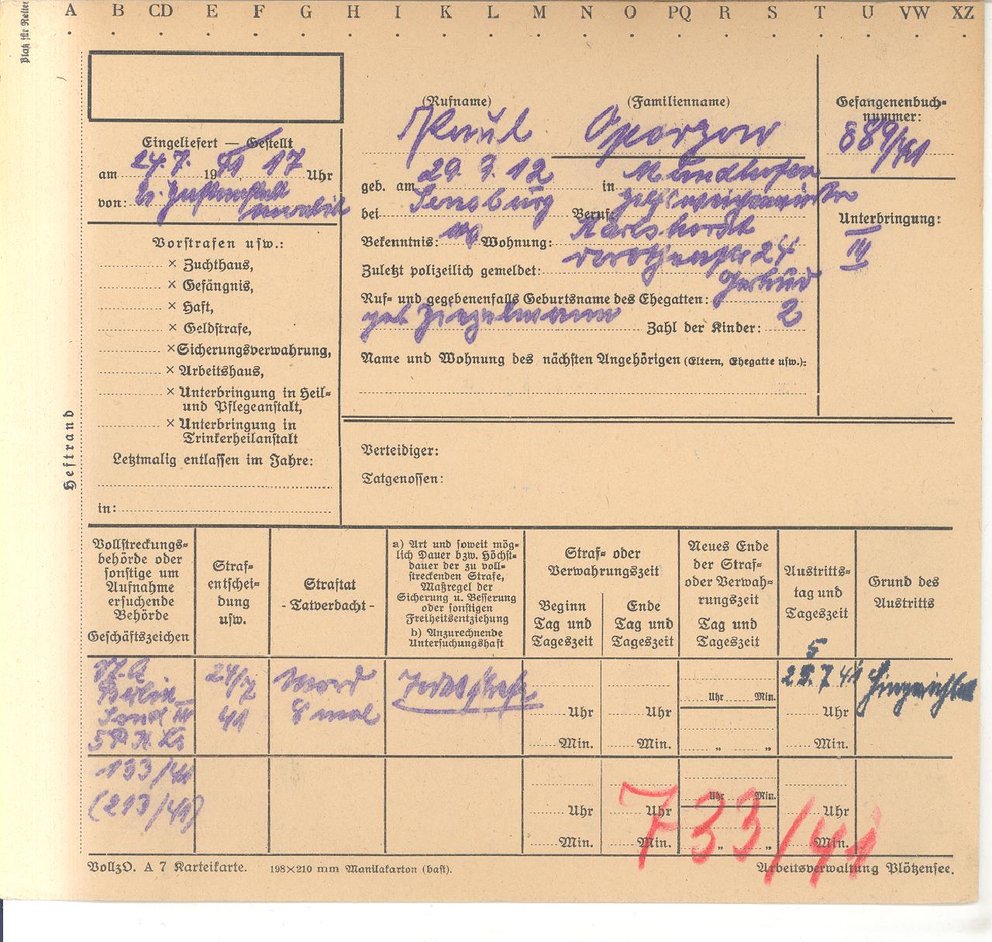 A B CD E F G H I K L M N O PQ R S T U VW XZ
(Rufname) (Familienname)
Paul Ogorzow
Gefangenenbuch-
nummer:
889/41
Eingeliefert — Gestellt
am 24.7. 1941 17 Uhr
von:
geb. am 29.9.12 in
bei Sensburg Beruf:
Bekenntnis: Wohnung: Karlshorst
Zuletzt polizeilich gemeldet: 24
Ruf- und gegebenenfalls Geburtsname des Ehegatten: Gertrud
geb. Ziegelmann Zahl der Kinder: 2
Name und Wohnung des nächsten Angehörigen (Eltern, Ehegatte usw.):
Unterbringung:
III
Vorstrafen usw.:
× Zuchthaus,
× Gefängnis,
× Haft,
× Geldstrafe,
× Sicherungsverwahrung,
× Arbeitshaus,
× Unterbringung in Heil-
und Pflegeanstalt,
× Unterbringung in
Trinkerheilanstalt
Letztmalig entlassen im Jahre:
in:
Verteidiger:
Tatgenossen:
Heftrand
Vollstreckungs-
behörde oder
sonstige um
Aufnahme
ersuchende
Behörde
Geschäftszeichen
Straf-
entschei-
dung
usw.
Straftat
- Tatverdacht -
a) Art und soweit mög-
lich Dauer bzw. Höchst-
dauer der zu voll-
streckenden Strafe,
Maßregel der
Sicherung u. Besserung
oder sonstigen
Freiheitsentziehung
b) Anzurechnende
Untersuchungshaft
Straf- oder
Verwahrungszeit
Beginn
Tag und
Tageszeit
Ende
Tag und
Tageszeit
Neues Ende
der Straf-
oder Verwah-
rungszeit
Tag und
Tageszeit
Austritts-
tag und
Tageszeit
Grund des
Austritts
Berlin
24/7
41
Mord
8 mal
Todesstrafe
25.7 41 Hingerichtet
Uhr Min.
Uhr Uhr Uhr
Min. Min. " " Min.
133/41
(213/41)
Uhr Min.
Uhr Uhr Uhr
Min. Min. " " Min.
733/41
VollzO. A 7 Karteikarte. 198×210 mm Manilakarton (haft). Arbeitsverwaltung Plötzensee.